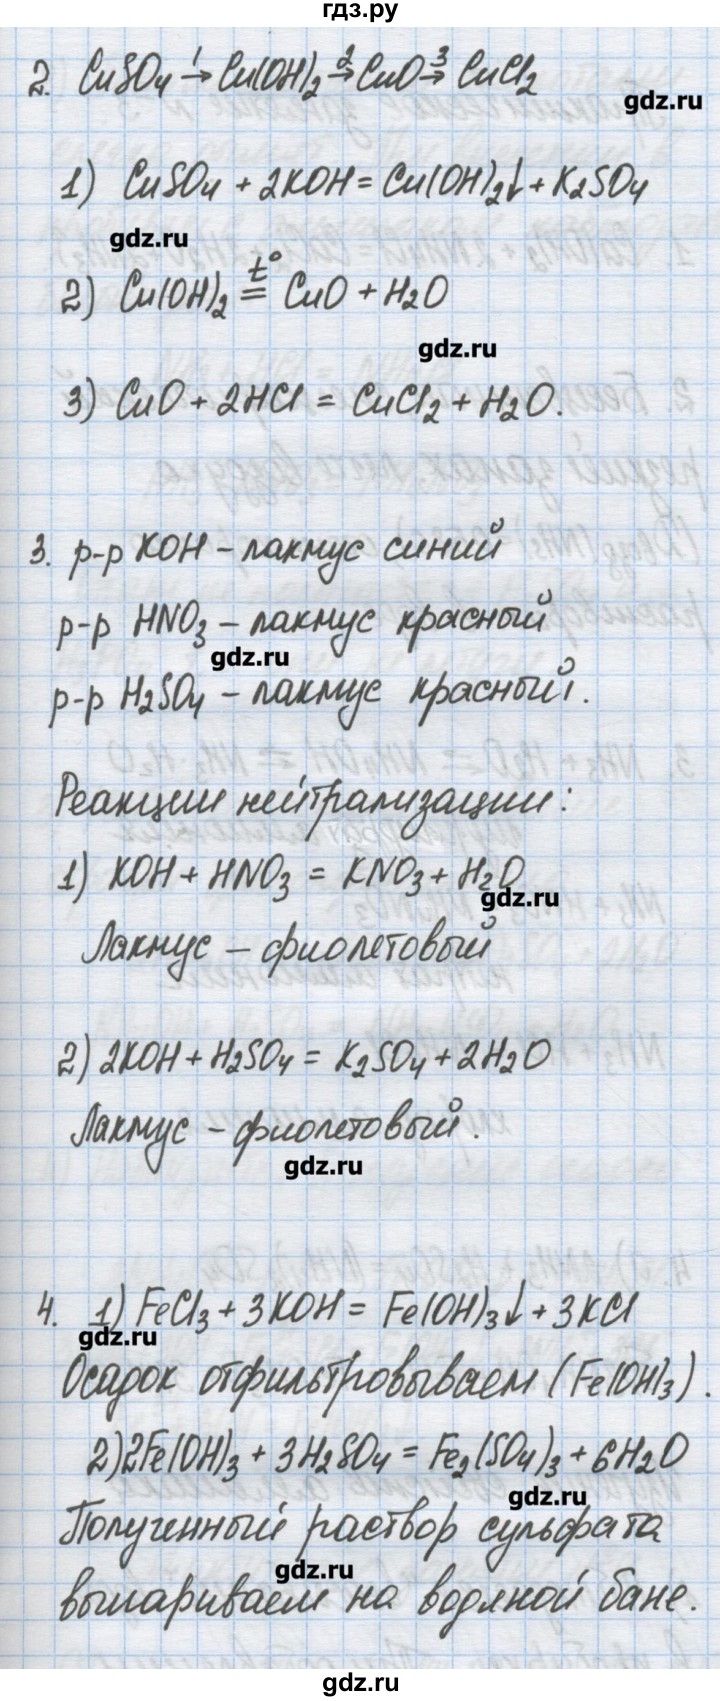 гдз.ру
2. CuSO4 →1 Cu(OH)2 →2 CuO →3 CuCl2
gdz.ru
1) CuSO4 + 2KOH = Cu(OH)2↓ + K2SO4
gdz.ru
2) Cu(OH)2 =t° CuO + H2O
gdz.ru
3) CuO + 2HCl = CuCl2 + H2O.
3. р-р KOH - лакмус синий
р-р HNO3 - лакмус красный
gdz.ru
р-р H2SO4 - лакмус красный.
Реакции нейтрализации:
1) KOH + HNO3 = KNO3 + H2O
gdz.ru
Лакмус - фиолетовый
2) 2KOH + H2SO4 = K2SO4 + 2H2O
Лакмус - фиолетовый.
gdz.ru
4. 1) FeCl3 + 3KOH = Fe(OH)3↓ + 3KCl
gdz.ru
Осадок отфильтровываем (Fe(OH)3).
2) 2Fe(OH)3 + 3H2SO4 = Fe2(SO4)3 + 6H2O
gdz.ru
Полученный раствор сульфата
gdz.ru
выпариваем на водяной бане.
gdz.ru